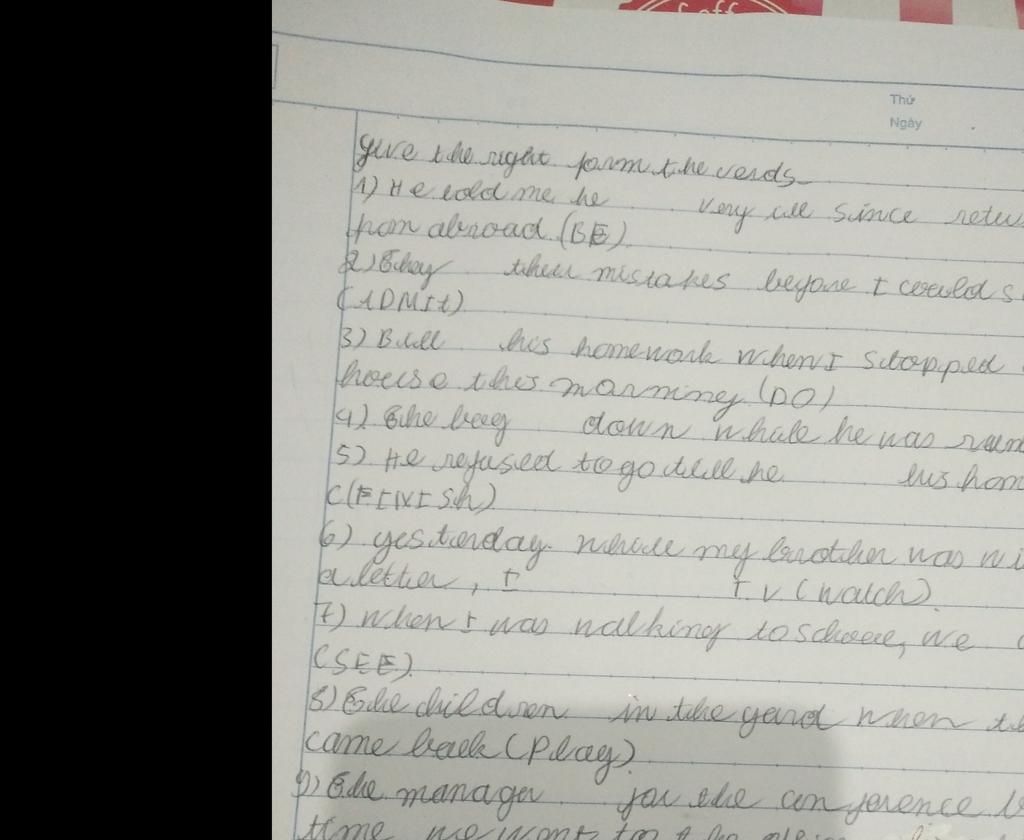 Thứ
Ngày
give the right form the verds
1) He told me he very ill since retu
from abroad (BE)
2) They their mistakes before I could s
(ADMIt)
3) Bill his homework when I stopped
house this morning (DO)
4) The boy down while he was runn
5) He refused to go till he his hom
(FINISh)
6) yesterday. while my brother was wi
a letter, I T.V (watch).
7) when I was walking to school, we
(SEE).
8) The children in the yard when th
came back (Play)
9) The manager for the conference b
time we want to